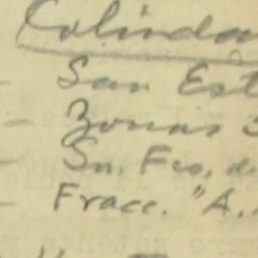 Colinda
- San Est
- Zonas
- Sn. Fco. d
- Fracc. "A.